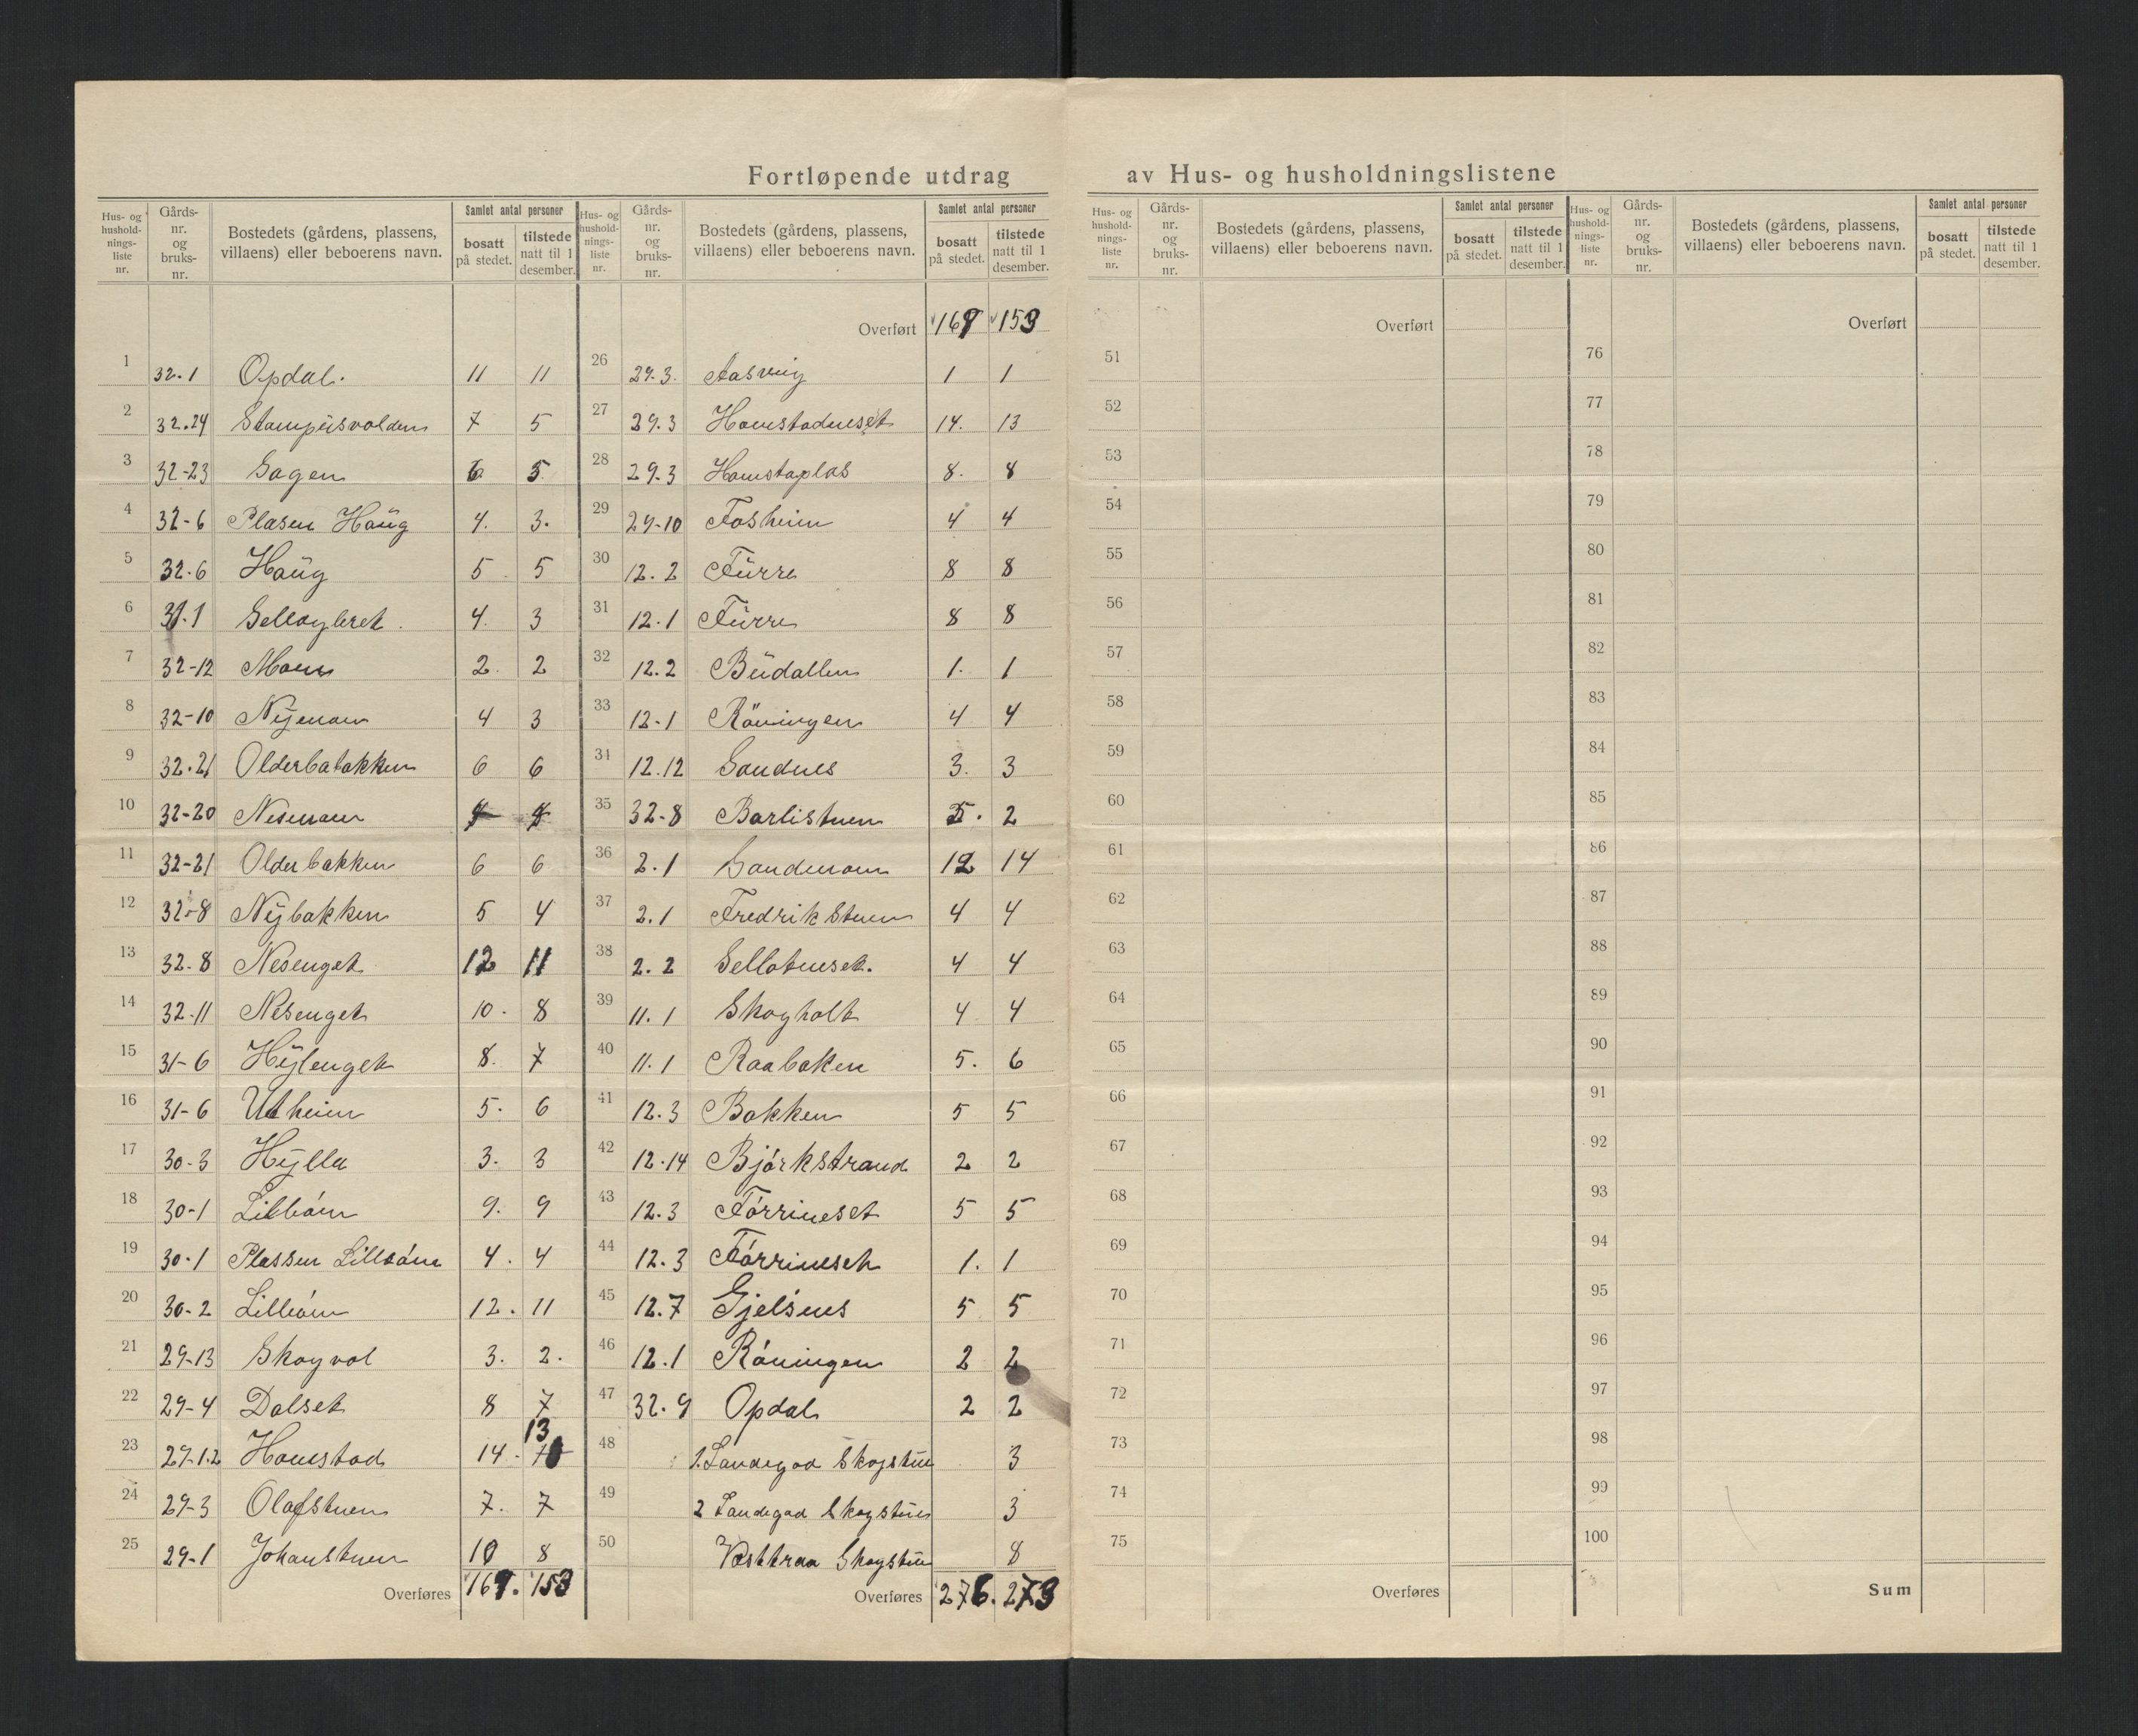 Fortløpende utdrag av Hus- og husholdningslistene
Hus- og hushold-nings-liste nr. | Gårds-nr. og bruks-nr. | Bostedets (gårdens, plassens, villaens) eller beboerens navn. | Samlet antal personer | bosatt på stedet. | tilstede natt til 1 desember.
1 32.1 Opdal. 11 11
2 32.24 5
3 32-23 Hagen 6 5
4 32-6 Plasen Haug 4. 3.
5 32.6 Haug 5 5
6 31.1 4. 3
7 32-12 Moen 2. 2
8 32-10 4 3
9 32.21 Olderbabakken 6 6
10 32-20
11 32-21 Olderbakken 6 6
12 32-8 Nybakken 5 4
13 32.8 Nesenget 12 11
14 32-11 Nesenget 10. 8
15 31-6 Hyllenget 8. 7
16 31-6 Utheim 5. 6
17 30-3 Hylla 3. 3
18 30-1 9. 9
19 30-1 Plassen 4. 4
20 30-2 12. 11
21 29-13 Skogvol 3. 2.
22 29-4 Dalset 8 7
23 29-1.2 Homstad 14. 13
24 29-3 Olafstuen 7. 7
25 29-1 Johanstuen 10 8
Overføres 153
Hus- og hushold-nings-liste nr. | Gårds-nr. og bruks-nr. | Bostedets (gårdens, plassens, villaens) eller beboerens navn. | Samlet antal personer | bosatt på stedet. | tilstede natt til 1 desember.
Overført 153
26 29.3. Aasveig 1 1
27 29.3 Homstadneset 14. 13
28 29.3 Homstaplas 8. 8
29 29-10 Fosheim 4 4
30 12.2 Furre 8 8
31 12.1 Furre 8 8
32 12.2 Budallen 1. 1
33 12-1 Röningen 4 4
34 12.12 Sandnes 3. 3
35 32-8 Barlistuen 5. 2
36 2.1 Sandmoen 12 14
37 2.1 Fredrikstuen 4 4
38 2.2 4 4
39 11.1 Skogholt 4 4
40 11.1 Raabaken 5. 6
41 12.3 Bakken 5 5
42 12.14 Bjórkstrand 2 2
43 12.3 Fórrineset 5 5
44 12.3 Fórrineset 1. 1
45 12.7 Gjelsnes 5 5
46 12.1 Róningen 2 2
47 32.9 Opdal 2 2
48 1. Landegod Skogstue 3
49 2 Landegod Skogstue 3
50 Skogstue 8
Overføres 276. 273
Hus- og hushold-nings-liste nr. | Gårds-nr. og bruks-nr. | Bostedets (gårdens, plassens, villaens) eller beboerens navn. | Samlet antal personer | bosatt på stedet. | tilstede natt til 1 desember.
Overført
51
52
53
54
55
56
57
58
59
60
61
62
63
64
65
66
67
68
69
70
71
72
73
74
75
Overføres
Hus- og hushold-nings-liste nr. | Gårds-nr. og bruks-nr. | Bostedets (gårdens, plassens, villaens) eller beboerens navn. | Samlet antal personer | bosatt på stedet. | tilstede natt til 1 desember.
Overført
76
77
78
79
80
81
82
83
84
85
86
87
88
89
90
91
92
93
94
95
96
97
98
99
100
Sum